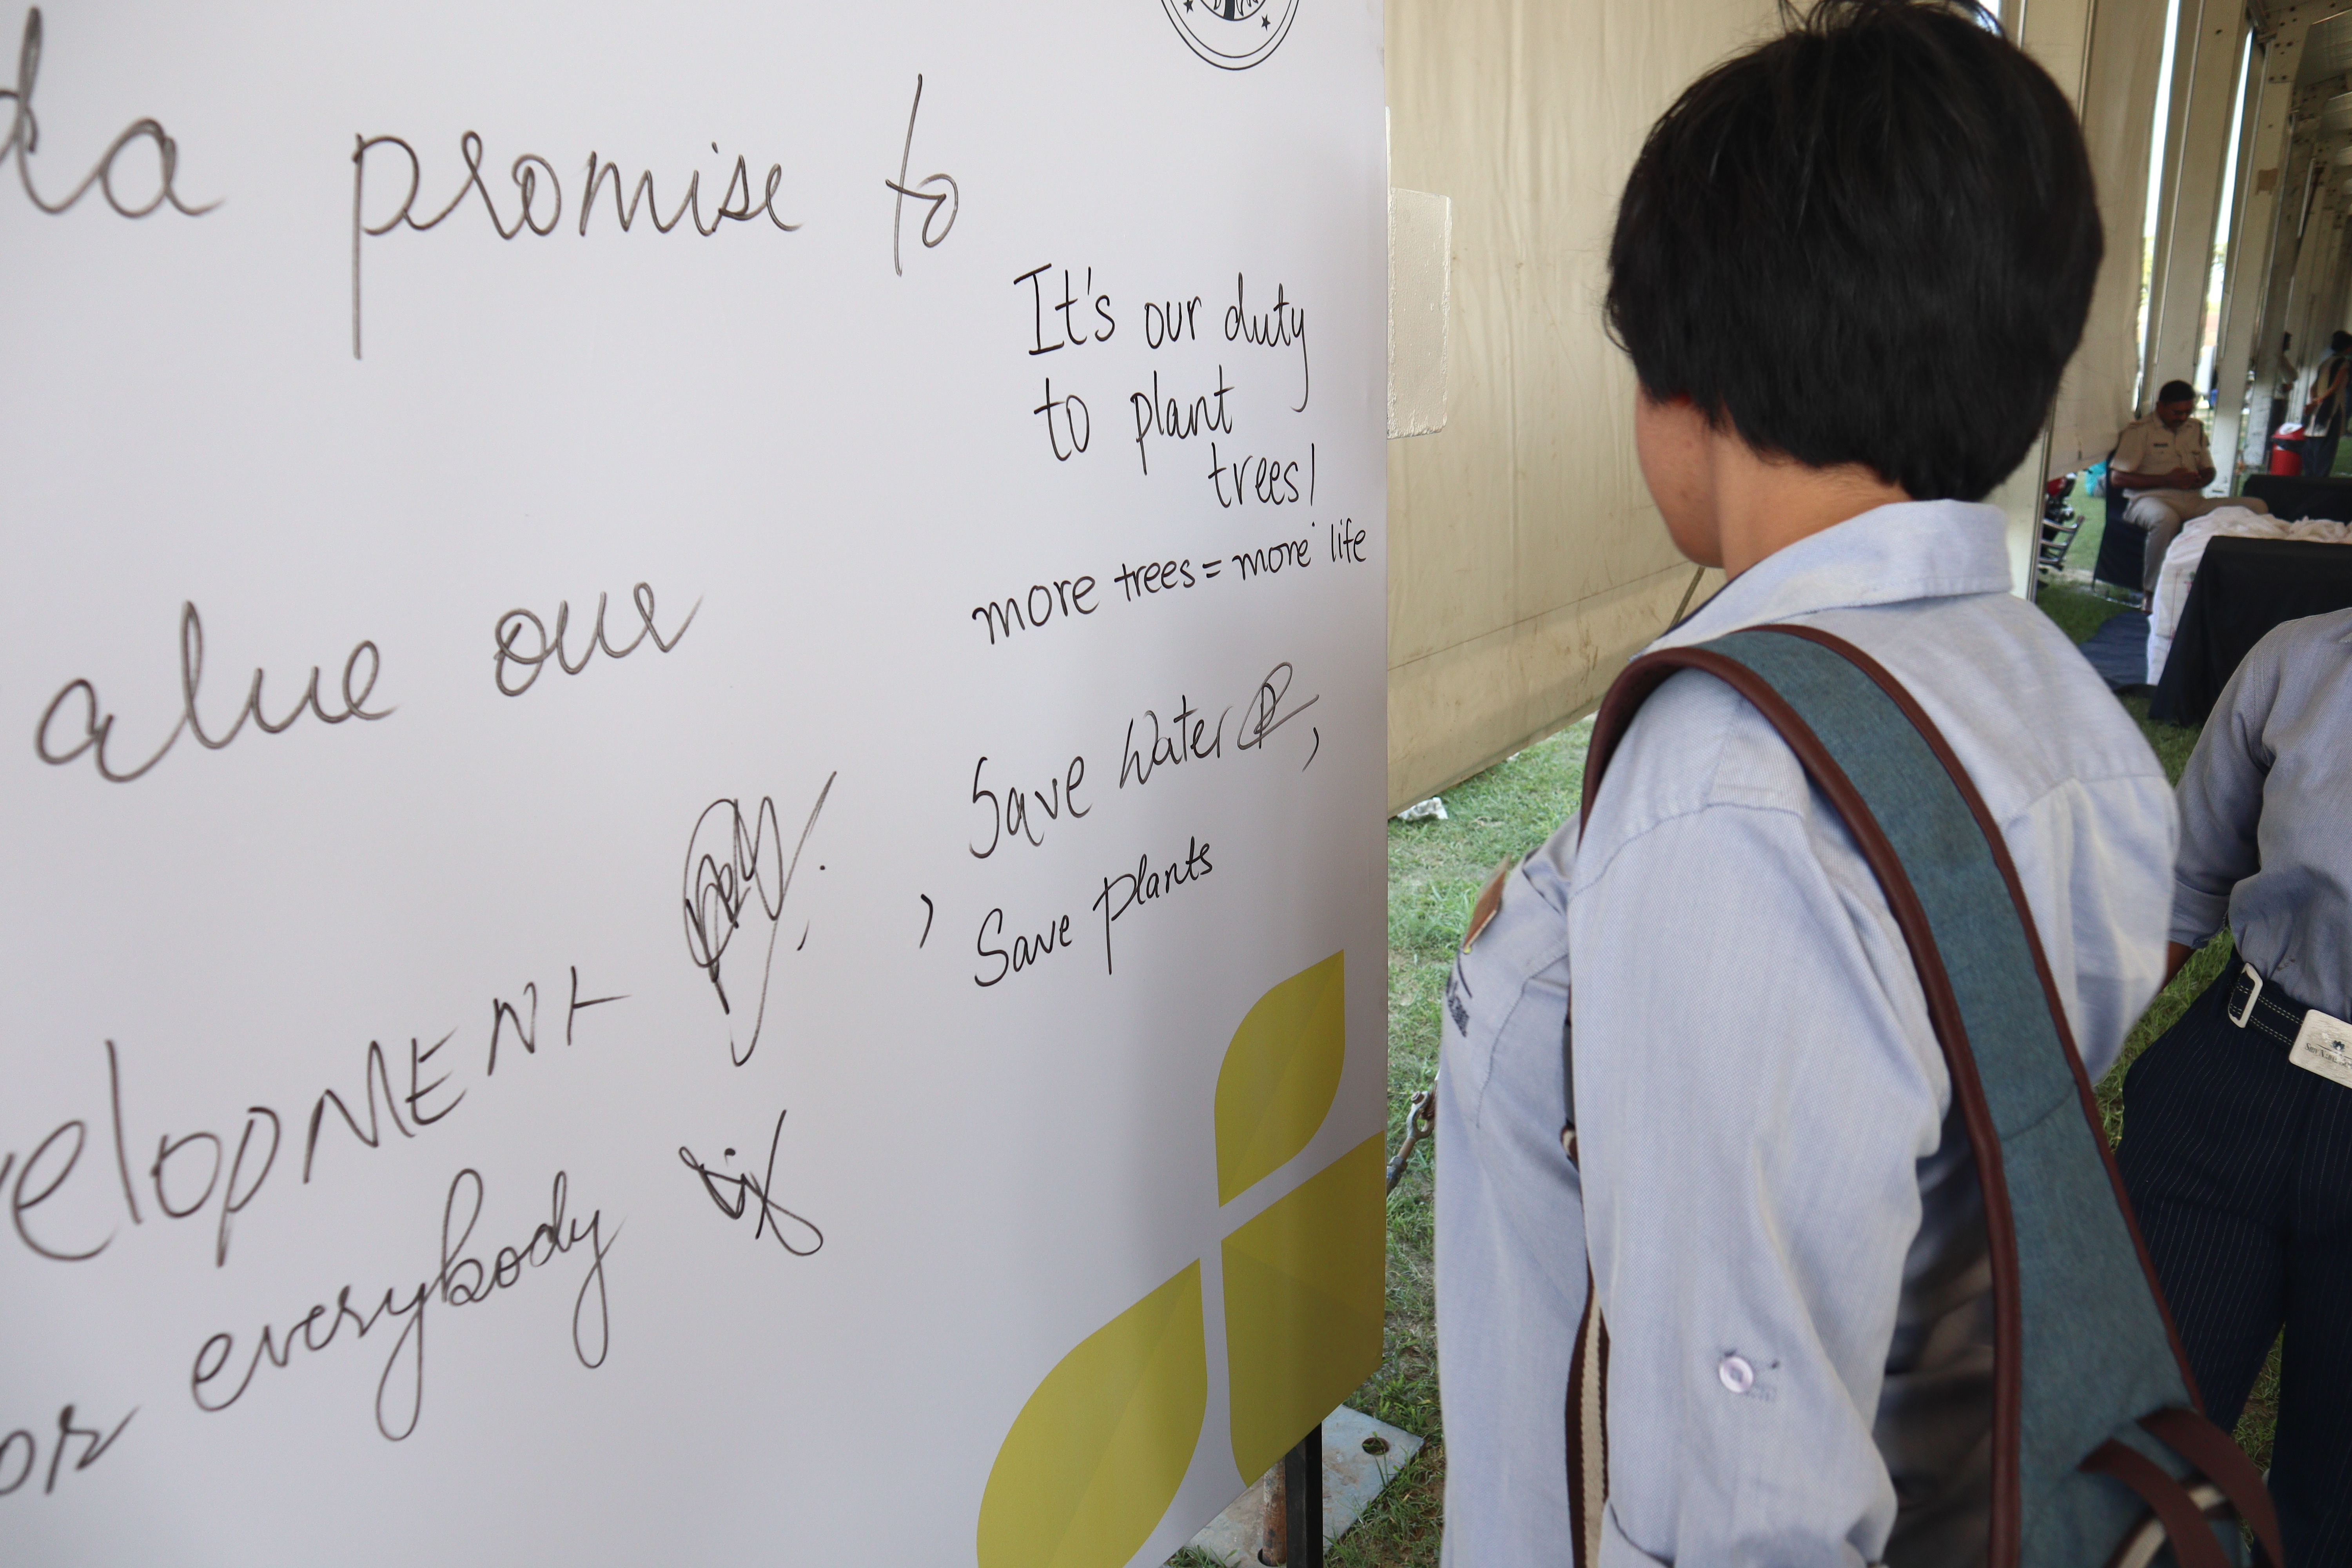 da promise to
alue our
velopMENt
or everybody
It's our duty
to plant
trees!
more trees = more life
Save Water ,
, Save plants